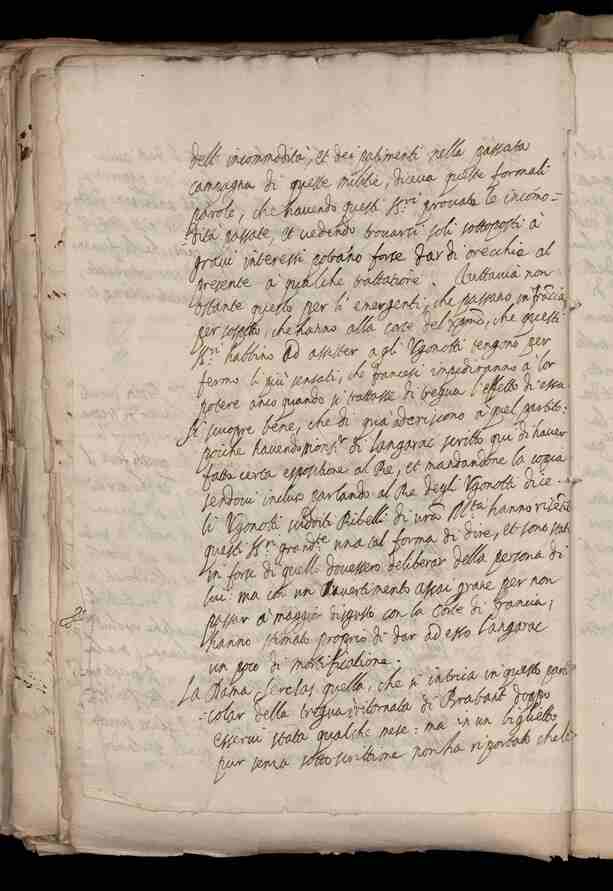 dell' incommodità, et dei patimenti nella passata
campagna di queste militie, diceva queste formali
parole, che havendo questi Ss.ri provate le incomo=
=dità passate, et vedendo trovarsi soli sottoposti à
gravi interessi potriano forse dar di orecchie al
presente à qualche trattatione. Tuttavia non
ostante questo per li emergenti, che passano in Francia,
per sospetto, che hanno alla Corte del, che questi
Ss.ri habbino ad assister agli Ugonotti tengono per
fermo li più sensati, che francesi impediranno à lor
potere anco quando si trattasse di tregua l'effetto di essa
Si scuopre bene, che di quà aderiscono à quel partito:
poiche havendo Mons.r di Langarac scritto qui di haver
fatto certa espositione al Re, et mandandone la copia
sendovi incluso parlando al Re degli Ugonotti dice
li Ugonotti sudditi Ribelli di vra M.tà hanno
questi Ss.ri grand.te una tal forma di dire, et sono stati
in forse di quello dovessero deliberar della persona di
lui: ma con un avvertimento assai grave per non
passar à maggior disgusto con la Corte di Francia,
hanno stimato proprio di dar ad esso Langarac
un poco di mortificatione.
La Dama Serclas quella, che si intrica in questo parti
=colar della tregua è ritornata di Brabant doppo
esservi stata qualche mese: ma in un biglietto
pur senza sottoscrittione non ha riportato che